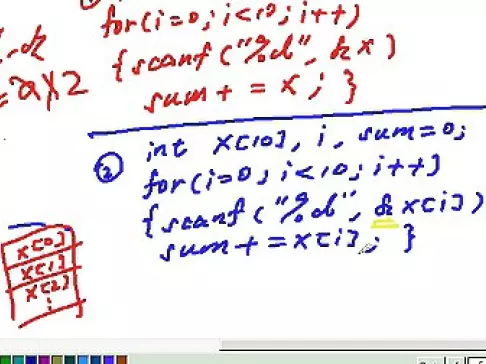 for(i=0; i<10; i++)
{scanf("%d", &x)
sum+=x; }
=a)x2
② int x[10], i, sum=0;
for(i=0; i<10; i++)
{scanf("%d", &x[i])
sum+=x[i]; }
x[0]
x[1]
x[2]
⋮